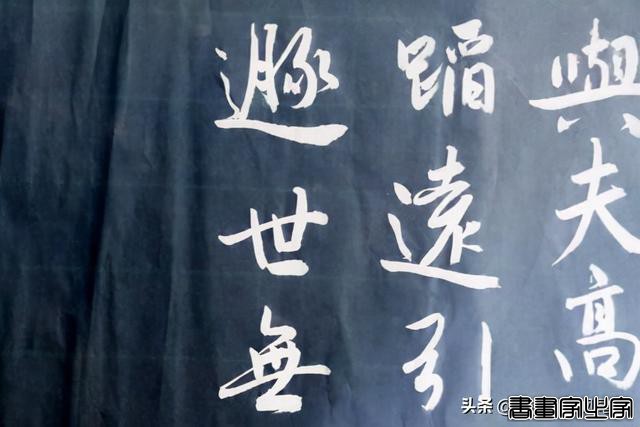 與夫高
蹈遠引
遯世無
头条 @書畫家